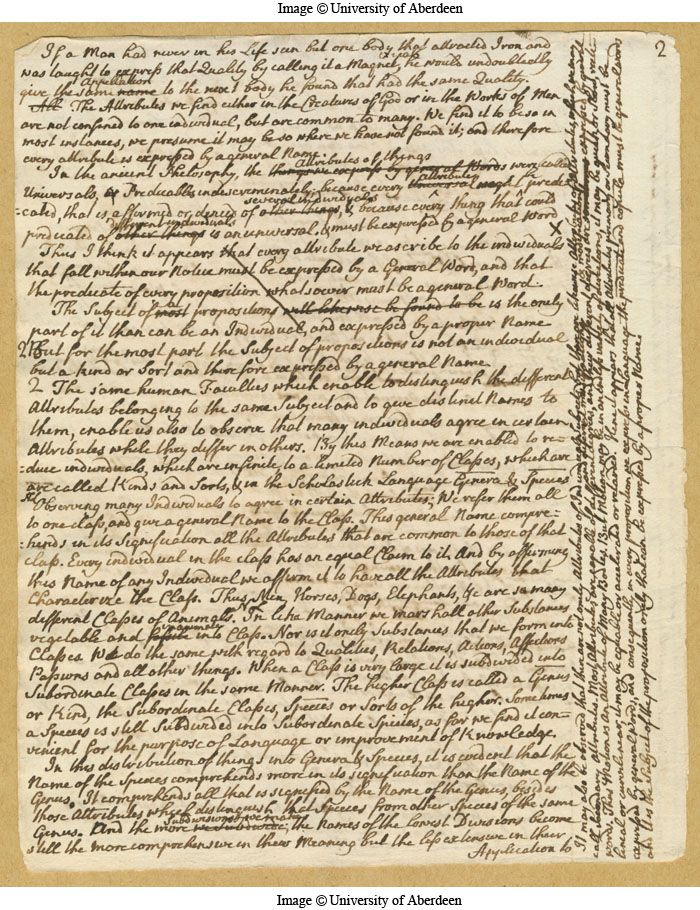 Image © University of Aberdeen
2
If a Man had never in his Life seen but one body that attracted Iron and
was taught to express that Quality by calling it a Magnet, he would undoubtedly
give the same name Appellation to the next body he found that had the same Quality.
The Attributes we find either in the Creatures of God or in the Works of Men
are not confined to one individual, but are common to many. We find it to be so in
most instances, we presume it may be so where we have not found it; and therefore
every attribute is expressed by a general Name.
In the ancient Philosophy, the things we express by general Words Attributes of things were called
Universals, & Predicables indiscriminately; because every attribute predi-
cated, that is, affirmed or denied of other things several individuals, & because every thing that could
predicated of other things different individuals is an universal, & must be expressed by a general Word
Thus I think it appears that every attribute we ascribe to the individuals
that fall within our Notice must be expressed by a General Word, and that
the predicate of every proposition whatsoever must be a general Word.
The Subject of most propositions will likewise be found to be is the only
part of it than can be an Individual, and expressed by a proper Name
But for the most part the Subject of propositions is not an individual
but a kind or Sort and therefore expressed by a general Name.
2 The same human Faculties which enable to distinguish the different
Attributes belonging to the same Subject and to give distinct Names to
them, enable us also to observe that many individuals agree in certain
Attributes while they differ in others. By this Means we are enabled to re-
-duce individuals, which are infinite, to a limited Number of Classes, which are
are called Kinds and Sorts, & in the Scholastick Language Genera & Species
Observing many Individuals to agree in certain Attributes; We refer them all
to one class, and give a general Name to the Class. This general Name compre-
-hends in its Signification all the Attributes that are common to those of that
class. Every individual in the class has an equal Claim to it. And by affirming
this Name of any Individual we affirm it to have all the Attributes that
Characterize the Class. Thus Men, Horses, Dogs, Elephants, &c are so many
different Classes of Animals. In like Manner we marshall other Substances
vegetable and inanimate into Class. Nor is it only Substances that we form into
Classes. We do the same with regard to Qualities, Relations, Actions, Affections
Passions and all other things. When a Class is very large it is subdivided into
Subordinate Classes in the same Manner. The higher Class is called a Genus
or Kind, the Subordinate Classes, Species or Sorts of the higher. Sometimes
a Species is still Subdivided into Subordinate Species, as far we find it con-
venient for the purpose of Language or improvement of Knowledge.
In this distribution of things into Genera & Species, it is evident that the
Name of the Species comprehends more in its signification than the Name of the
Genus. It comprehends all that is signified by the Name of the Genus, besides
those Attributes which distinguish that Species from other Species of the same
Genus. And the more we subdivide Subdivisions we make, the Names of the lowest Divisions become
still the more comprehensive in their Meaning but the less extensive in their
Application to
It may also be observed that there are not only Attributes of
call Secondary Attributes. Most Attributes are capable of
words. Thus Motion is an Attribute of
lineal or curvilinear, it may be equable, accelerated or retarded. Hence it appears that all Attributes primary or Secondary must be
expressed by general words, and consequently in every proposition we express in Language the predicate must be general words
and it is the Subject of the proposition only that can be expressed by a proper Name
Image © University of Aberdeen